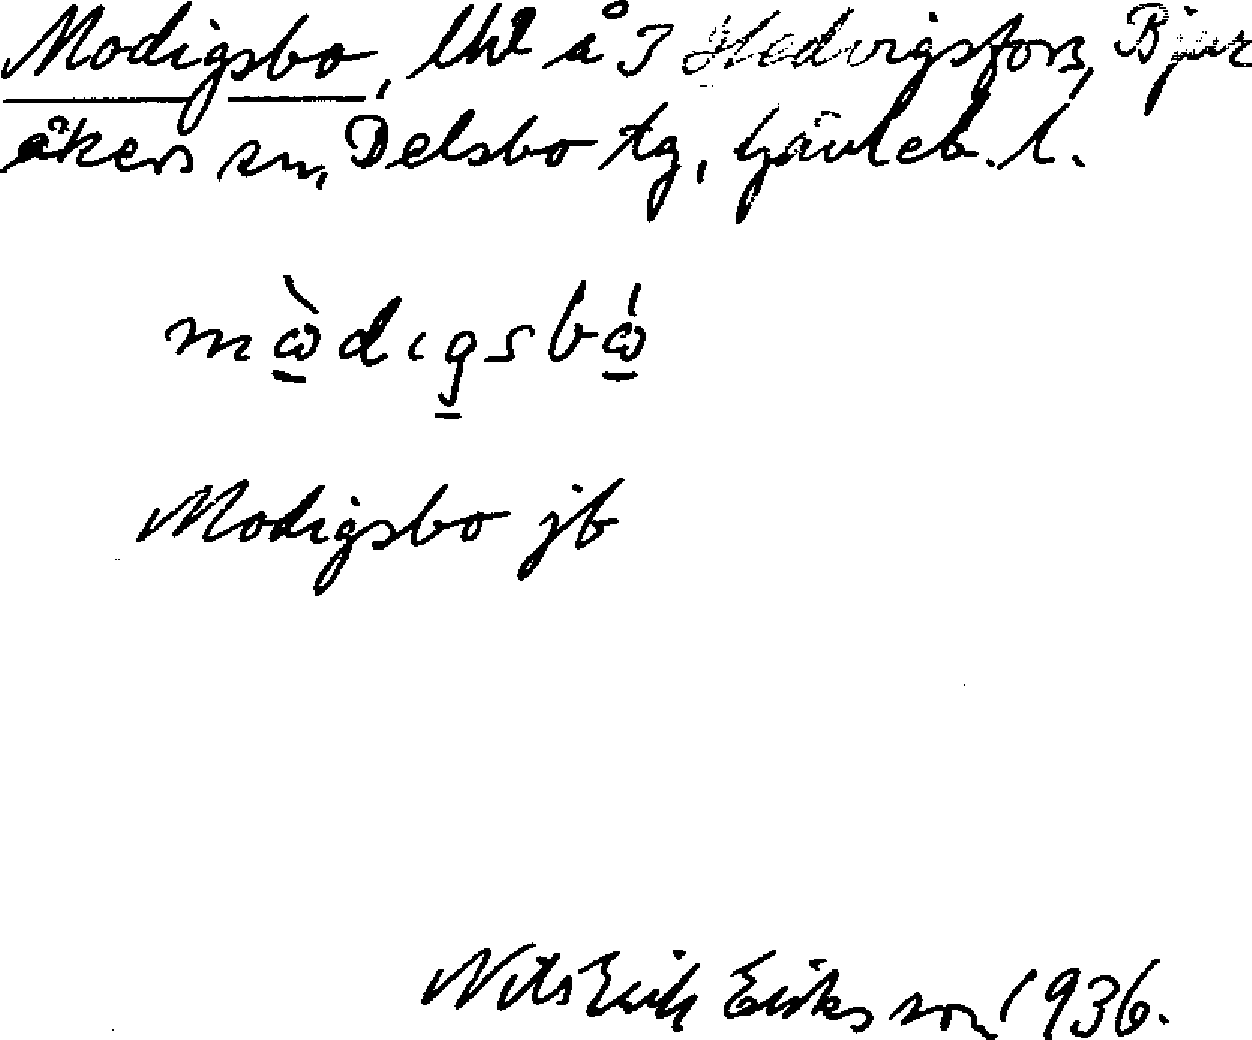 Modigsbo, lht å 3 Hedvigsfors, Bjur
åkers sn, Delsbo tg, Gävleb. l.
mὼ̲dıg̲sbώ̲
Modigsbo jb
Nils Erik Eriksson 1936.